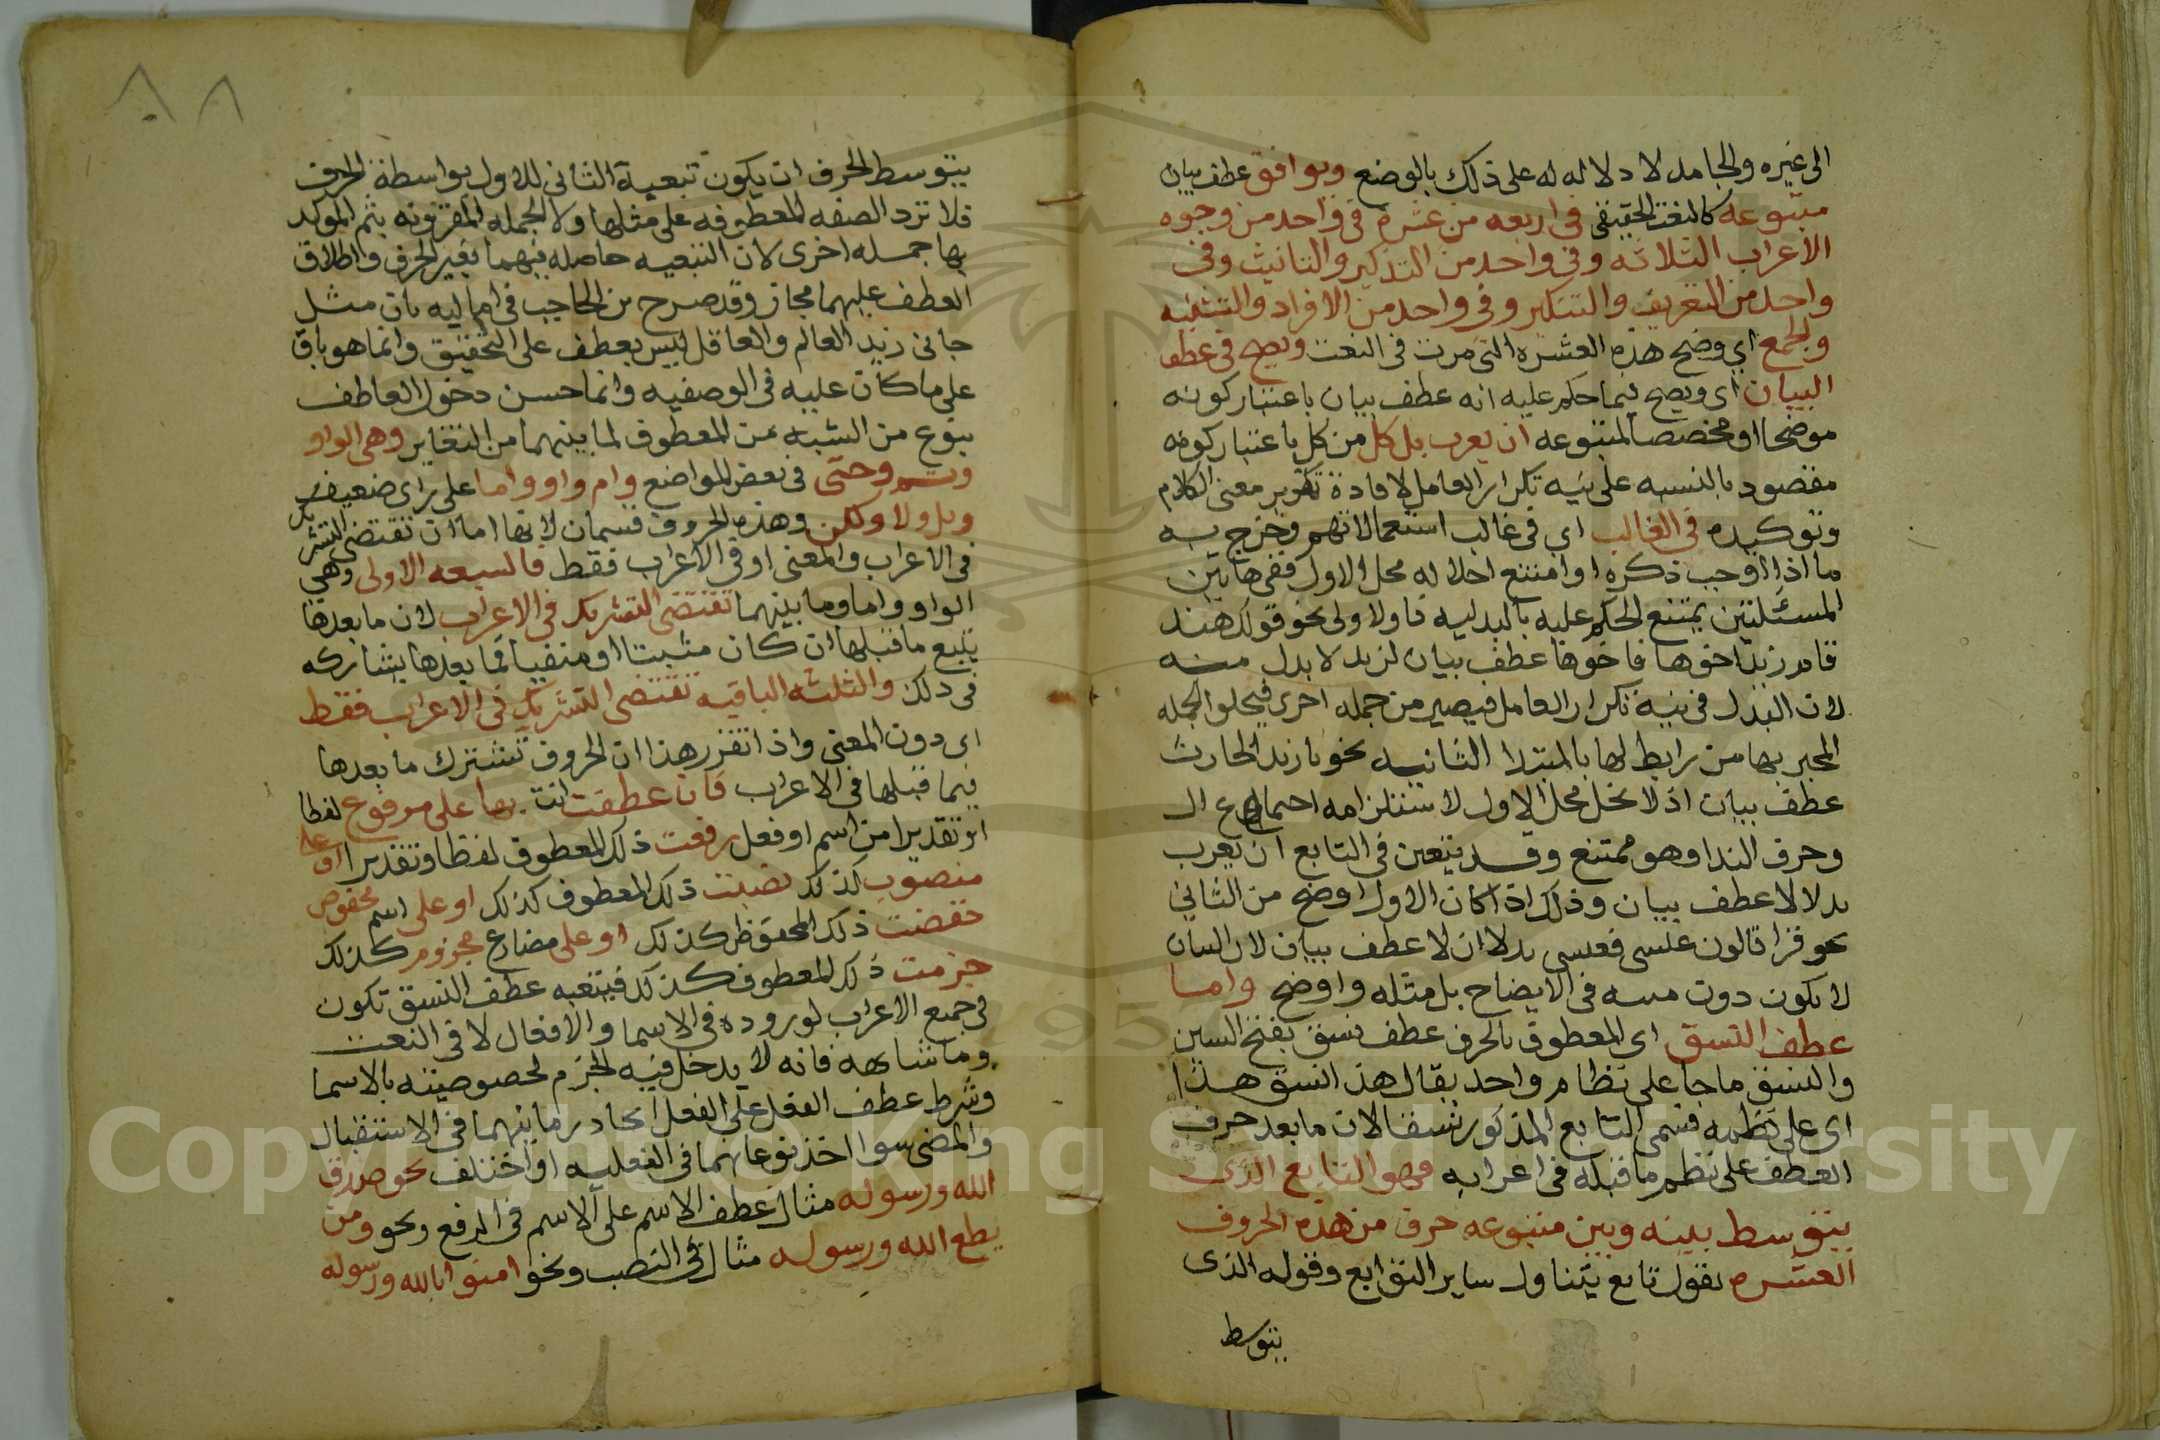 الى غيره والجامد لا دلاله له على ذلك بالوضع ويوافق عطف بيان
متبوعه كالنعت الحقيقى فى اربعه من عشره فى واحد من وجوه
الاعراب الثلاثه وفى واحد من التذكير والتانيث وفى
واحد من التعريف والتنكير وفى واحد من الافراد والتثنيه
والجمع اي وضح هذه العشره التى مرت فى النعت ويصح فى عطف
البيان اى ويصح فيما حكم عليه انه عطف بيان باعتبار كونه
موضحا او مخصصا لمتبوعه ان يعرب بدل كل من كل باعتبار كونه
مقصود بالنسبه على نيه تكرار العامل لافادة تقرير معنى الكلام
وتوكيده فى الغالب اى فى غالب استعمالاتهم وخرج به
ما اذا اوجب ذكره او امتنع احلاله محل الاول ففى هاتين
المسئلتين يمتنع الحكم عليه بالبدليه فاولا ولى نحو قولك هند
قام زيد اخوها فاخوها عطف بيان لزيد لا بدل منه
لان البدل فى نيه تكرار العامل فيصير من جمله اخرى فيخلو الجمله
المخبر بها من رابط لها بالمبتدا الثانيه نحو يا زيد الحارث
عطف بيان اذ لا يحل محل الاول لاستلزامه اجتماع ال
وحرف الندا وهو ممتنع وقد يتعين فى التابع ان يعرب
بدلا لا عطف بيان وذلك اذا كان الاول اوضح من الثانى
نحو قرا قالون عيسى فعيسى بدلا ان لا عطف بيان لان البيان
لا يكون دون مبينه فى الايضاح بل مثله واوضح واما
عطف النسق اى المعطوف بالحرف عطف نسق بفتح السين
والنسق ما جا على نظام واحد يقال هذا نسق هذا
اى على نظمه فسمى التابع المذكور نسقا لان ما بعد حرف
العطف على نظم ما قبله فى اعرابه فهو التابع الذى
يتوسط بينه وبين متبوعه حرف من هذه الحروف
العشره بقول تابع يتناول ساير التوابع وقوله الذى
يتوسط
٨٨
يتوسط الحرف ان يكون تبعية الثانى للاول بواسطة الحرف
فلا ترد الصفه المعطوفه على مثلها ولا الجمله المقرونه بثم الموكد
بها جمله اخرى لان التبعيه حاصله فيهما بغير الحرف واطلاق
العطف عليهما مجاز وقد صرح بن الحاجب فى اماليه بان مثل
جانى زيد العالم والعاقل ليس بعطف على التحقيق وانما هو باق
على ما كان عليه فى الوصفيه وانما حسن دخول العاطف
بنوع من الشبه من المعطوف لما بينهما من التغاير وهى الواو
وثم وحتى فى بعض المواضع وام واو واما على راى ضعيف
وبل ولا ولكن وهذه الحروف قسمان لانها اما ان تقتضى التشريك
فى الاعراب والمعنى او فى الاعراب فقط فالسبعه الاولى وهى
الواو واما وما بينهما تقتضى التشريك فى الاعراب لان ما بعدها
يتبع ما قبلها ان كان مثبتا او منفيا فما بعدها يشاركه
فى ذلك والثلثه الباقيه تقتضى التشريك فى الاعراب فقط
اى دون المعنى واذا تقرر هذا ان الحروف تشترك ما بعدها
فيما قبلها فى الاعراب فان عطفت انت بها على مرفوع لفظا
او تقديرا من اسم او فعل رفعت ذلك المعطوف لفظا وتقديرا او على
منصوب كذلك نصبت ذلك المعطوف كذلك او على اسم مخفوض
خفضت ذلك المخفوظ كذلك او على مضارع مجزوم كذلك
جزمت ذلك المعطوف كذلك فتبعيه عطف النسق تكون
فى جميع الاعراب لوروده فى الاسما والافعال لا فى النعت
وما شابهه فانه لا يدخل فيه الجزم لخصوصيته بالاسما
وشرط عطف الفعل على الفعل اتحاد زمانيهما فى الاستقبال
والمضى سوا اتخذ نوعاهما فى الفعليه او اختلف نحو صدق
الله ورسوله مثال عطف الاسم على الاسم فى الرفع ونحو ومن
يطع الله ورسوله مثال فى النصب ونحو امنوا بالله ورسوله
Copyright © King Saud University
1957